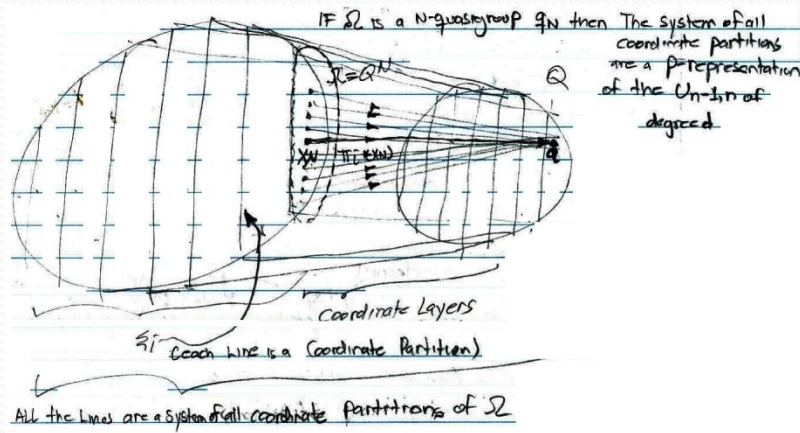 IF Ω is a N-quasigroup qN then The system of all
coordinate partitions
are a P-representation
of the Un-1,n of
degree d
Ω=Q^N
Q
XN
πi(XN)
q
Coordinate Layers
ξi (each Line is a Coordinate Partition)
All the Lines are a System of all coordinate Partitions of Ω